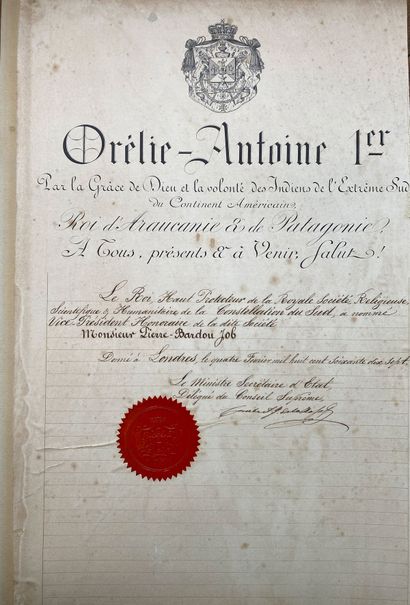 Orélie-Antoine 1er
Par la Grâce de Dieu et la volonté des Indiens de l'Extrême Sud
du Continent Américain,
Roi d'Araucanie & de Patagonie,
A Tous, présents & à Venir, Salut!
Le Roi, Haut Protecteur de la Royale Société Religieuse,
Scientifique & Humanitaire de la Constellation du Sud, a nommé
Vice-Président Honoraire de la dite Société
Monsieur Pierre-Bardou Job
Donné à Londres, le quatre Février mil huit cent soixante dix sept.
Le Ministre Secrétaire d'Etat
Délégué du Conseil Suprême,